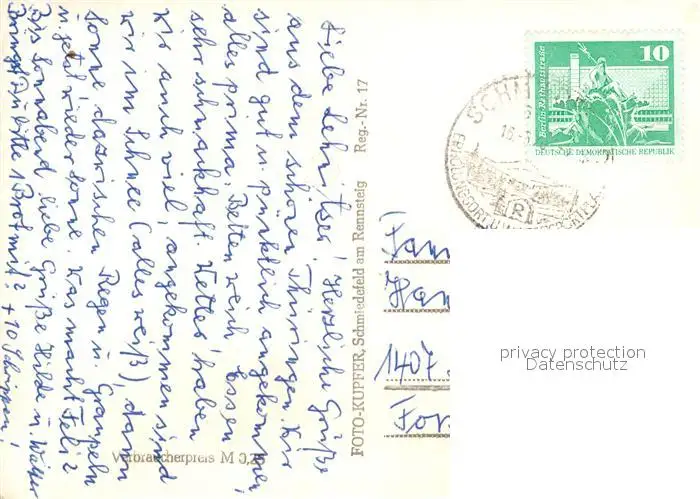 Liebe Lehnitzer! Herzliche Grüße
aus dem schönen Thüringen. Wir
sind gut u. pünktlich angekommen,
alles prima, Betten weich, Essen
sehr schmackhaft. Wetter haben
wir auch viel, angekommen sind
wir im Schnee (alles weiß), dann
Sonne, dazwischen Regen u. Graupeln
u. jetzt wieder Sonne. Was macht Felix?
Bis Sonnabend liebe Grüße Hilde u. Walter
Bringst Du bitte 1 Brot mit? + 10 Schrippen!
Verbraucherpreis M 0,25
FOTO-KUPFER, Schmiedefeld am Rennsteig Reg.-Nr. 17
10
Berlin·Rathausstraße
DEUTSCHE DEMOKRATISCHE REPUBLIK
SCHM
16.
R
Fam
Han
1407
For
privacy protection
Datenschutz